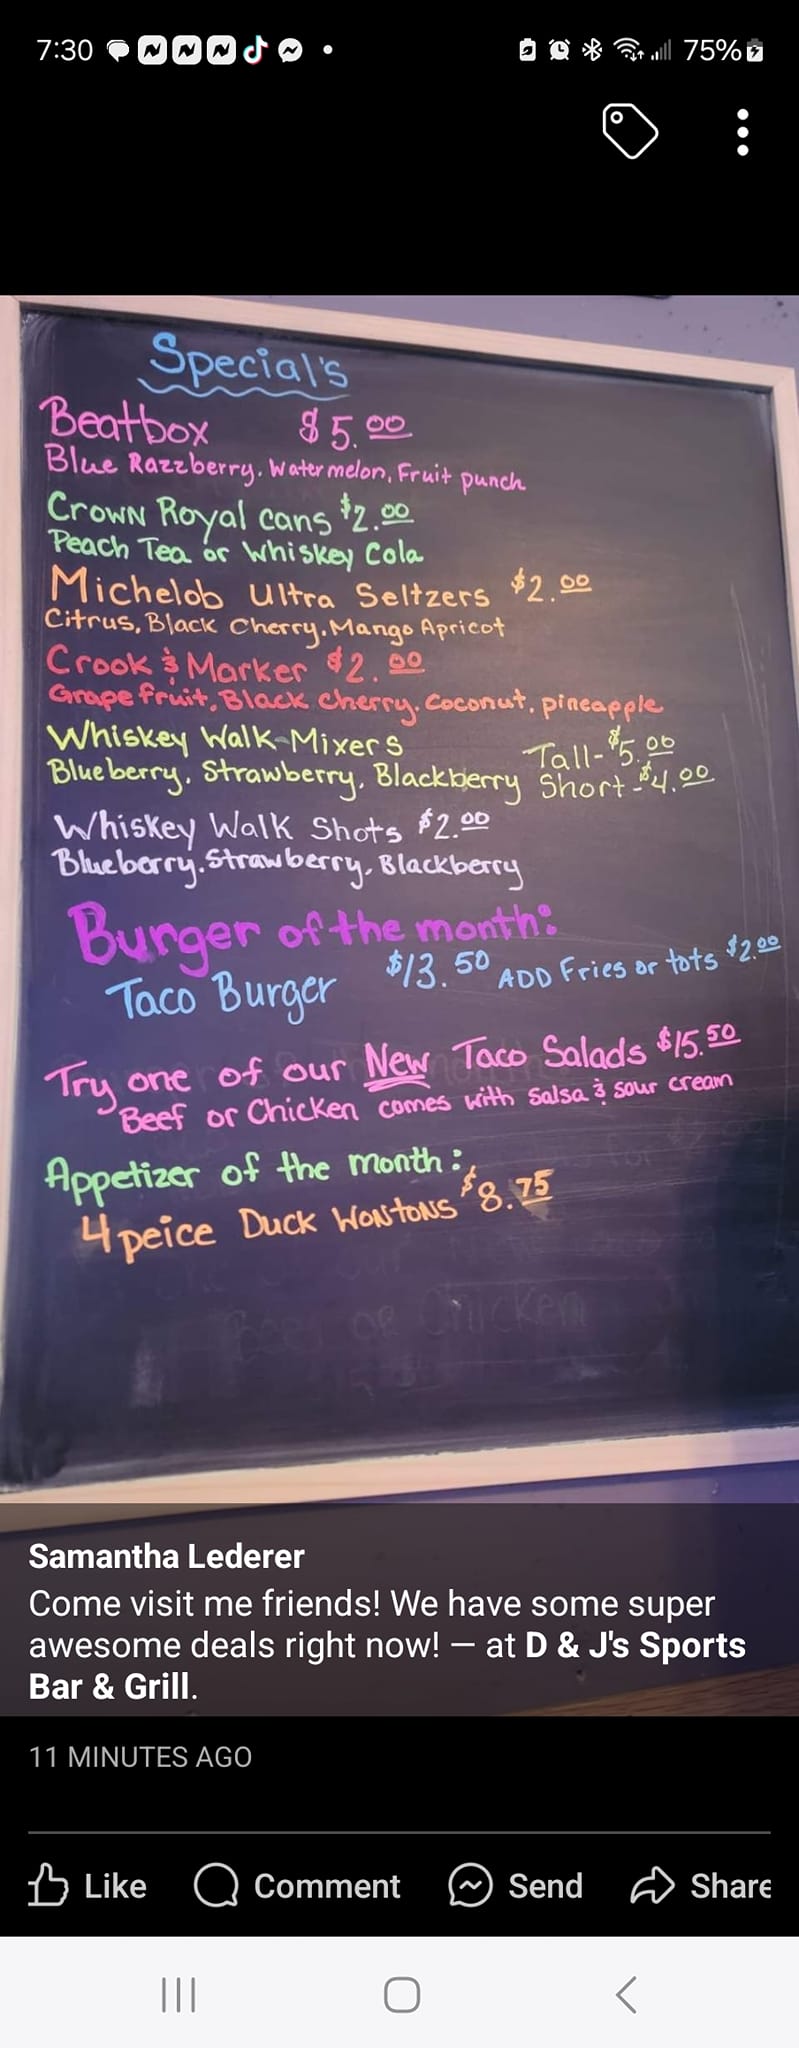 7:30
75%
Special's
Beatbox $5.00
Blue Razzberry, Watermelon, Fruit punch
Crown Royal cans $2.00
Peach Tea or Whiskey Cola
Michelob Ultra Seltzers $2.00
Citrus, Black Cherry, Mango Apricot
Crook & Marker $2.00
Grapefruit, Black cherry, Coconut, pineapple
Whiskey Walk-Mixers Tall-$5.00
Blueberry, Strawberry, Blackberry Short-$4.00
Whiskey Walk Shots $2.00
Blueberry, Strawberry, Blackberry
Burger of the month:
Taco Burger $13.50 ADD Fries or tots $2.00
Try one of our New Taco Salads $15.50
Beef or Chicken comes with Salsa & sour cream
Appetizer of the month:
4 peice Duck Wontons $8.75
Beef or Chicken
Samantha Lederer
Come visit me friends! We have some super
awesome deals right now! — at D & J's Sports
Bar & Grill.
11 MINUTES AGO
Like Comment Send Share